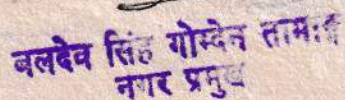 बलदेव सिंह गोम्देन तामाङ
नगर प्रमुख